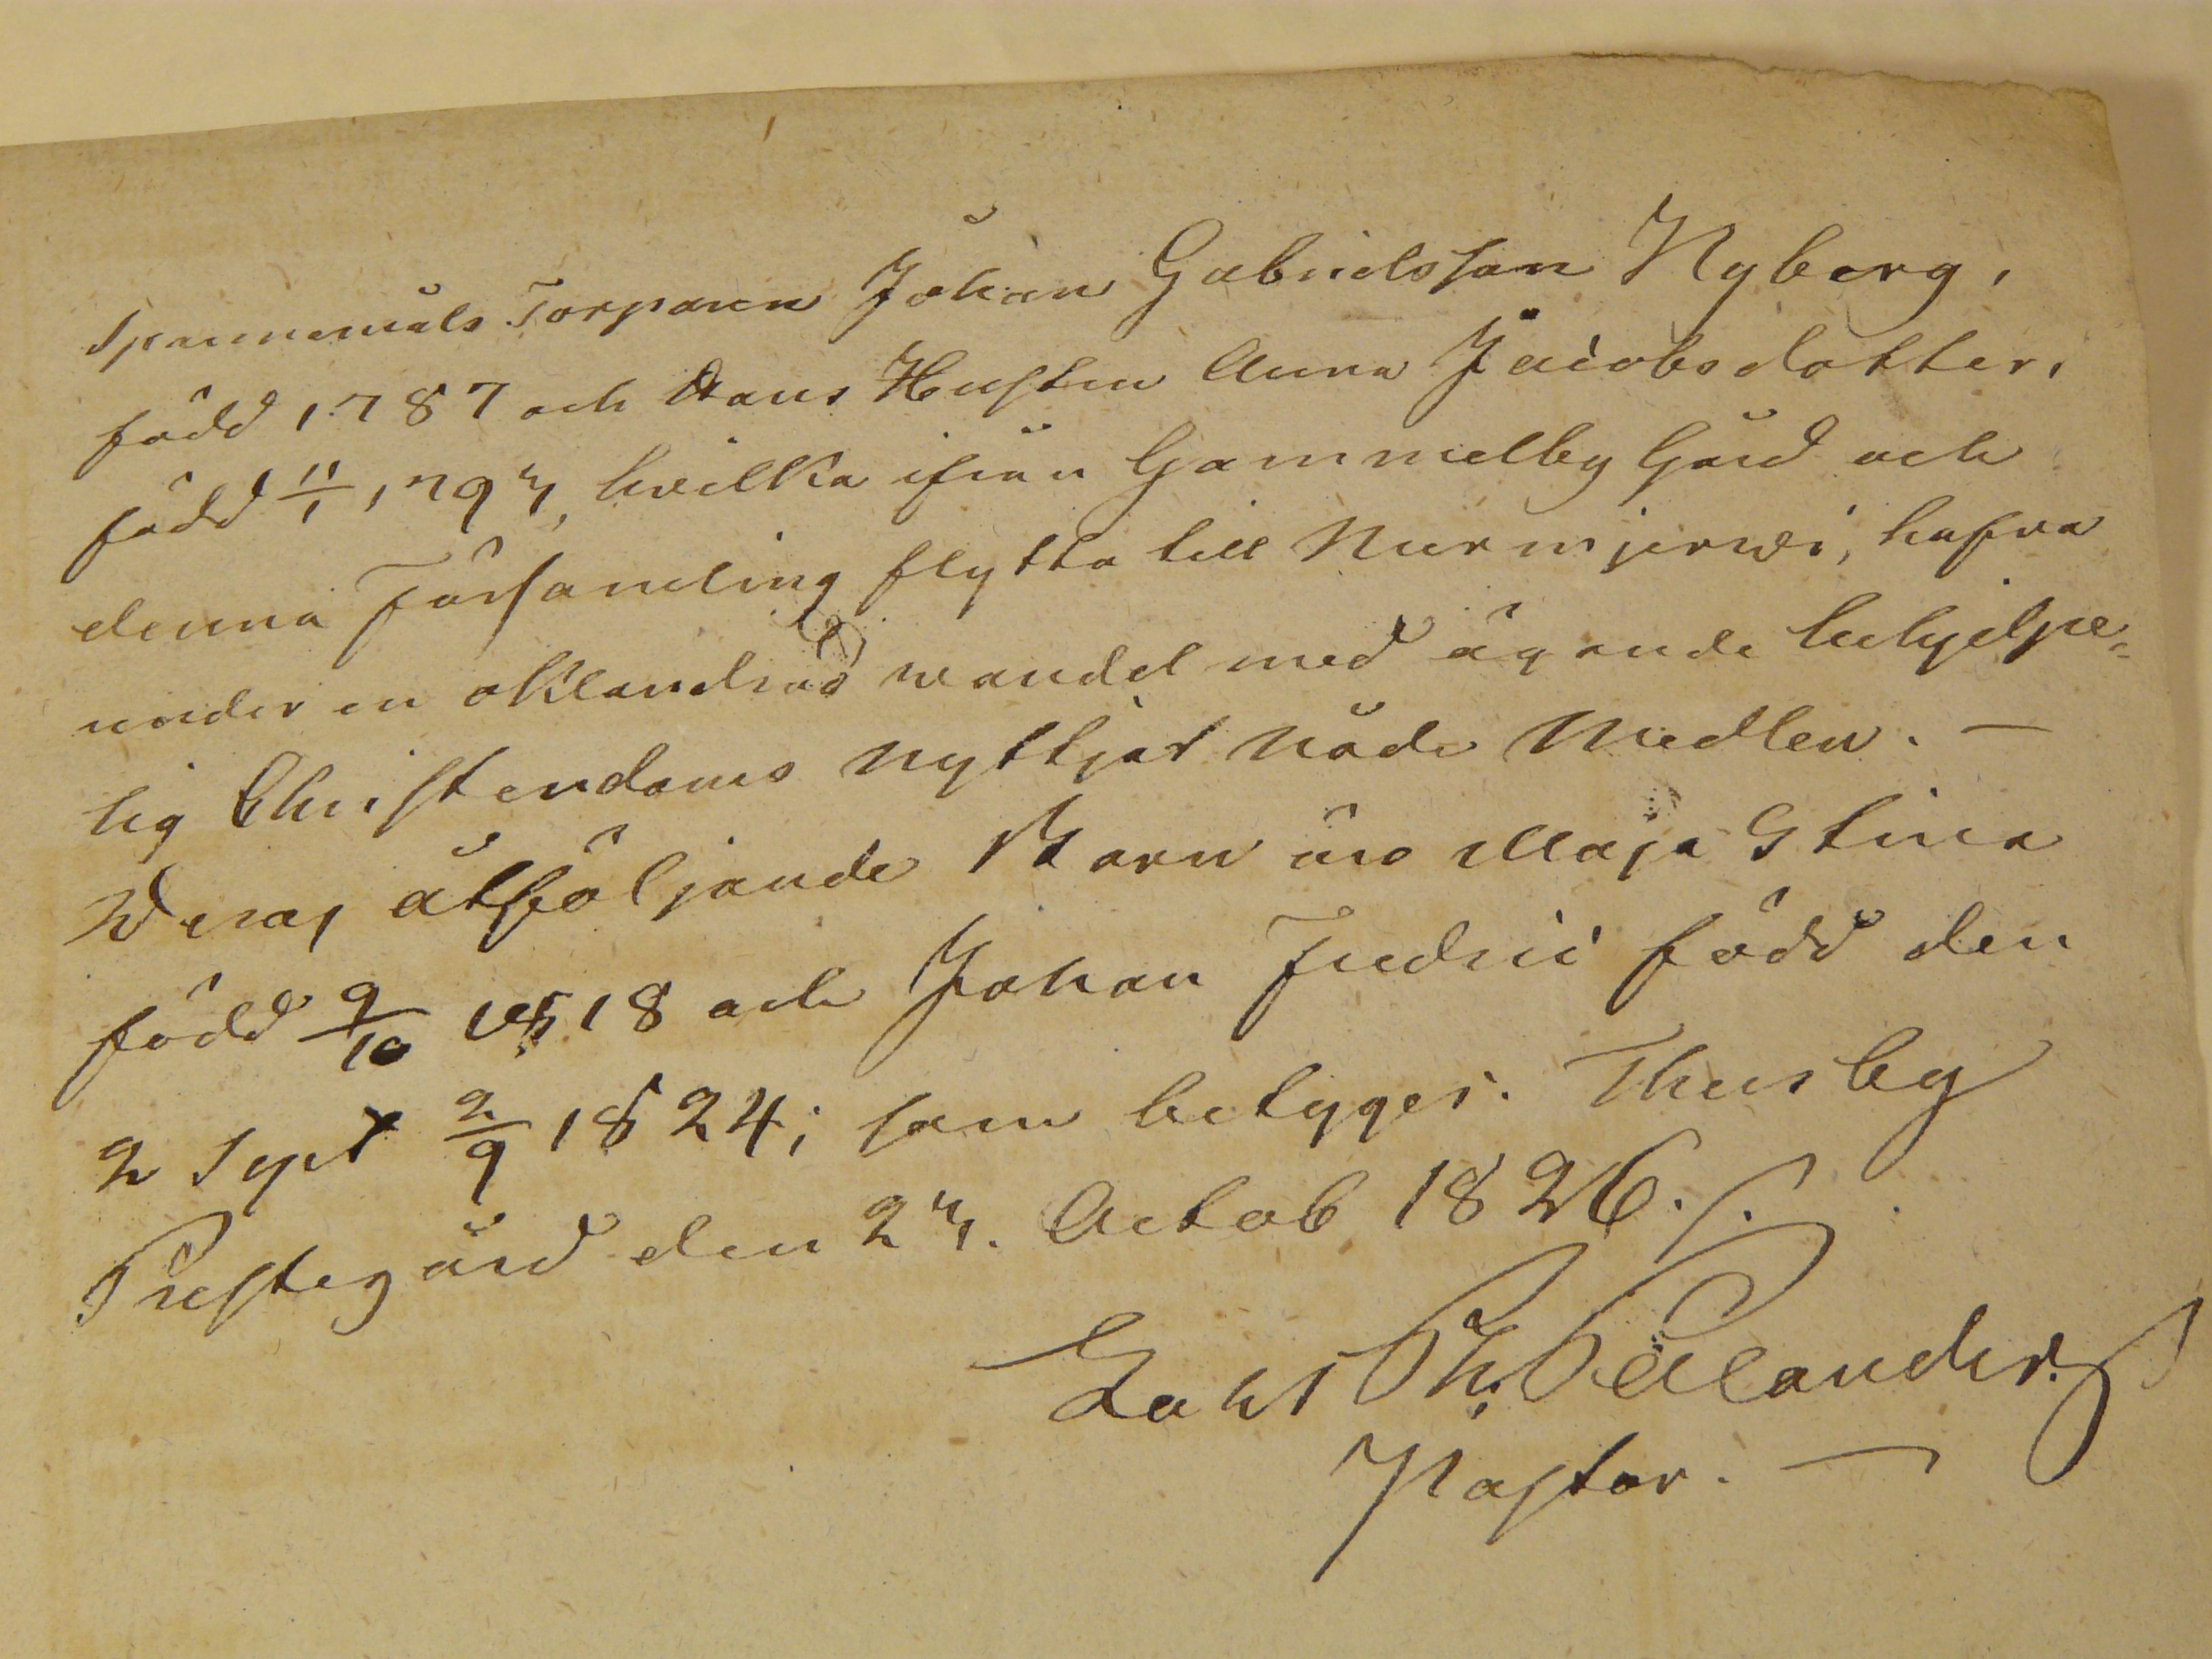 Spannemåls Torparen Johan Gabrielsson Nyberg,
född 1787 och Hans Hustru Anna Jacobsdotter,
född 11/1 1793, hvilka ifrån Gammelby Gård och
denna Församling flytta till Nurmjerwi, hafva
under en oklandrad wandel med ägande behjelpe-
lig Christendoms nyttjat Nåde Medlen. —
Deras åtföljande Barn äro Maja Stina
född 9/10 1818 och Johan Fredric född den
2 Sept 2/9 1824; som betyges. Thusby
Prestegård den 23. Octob 1826.
Lars Ph. Palander.
Pastor. —